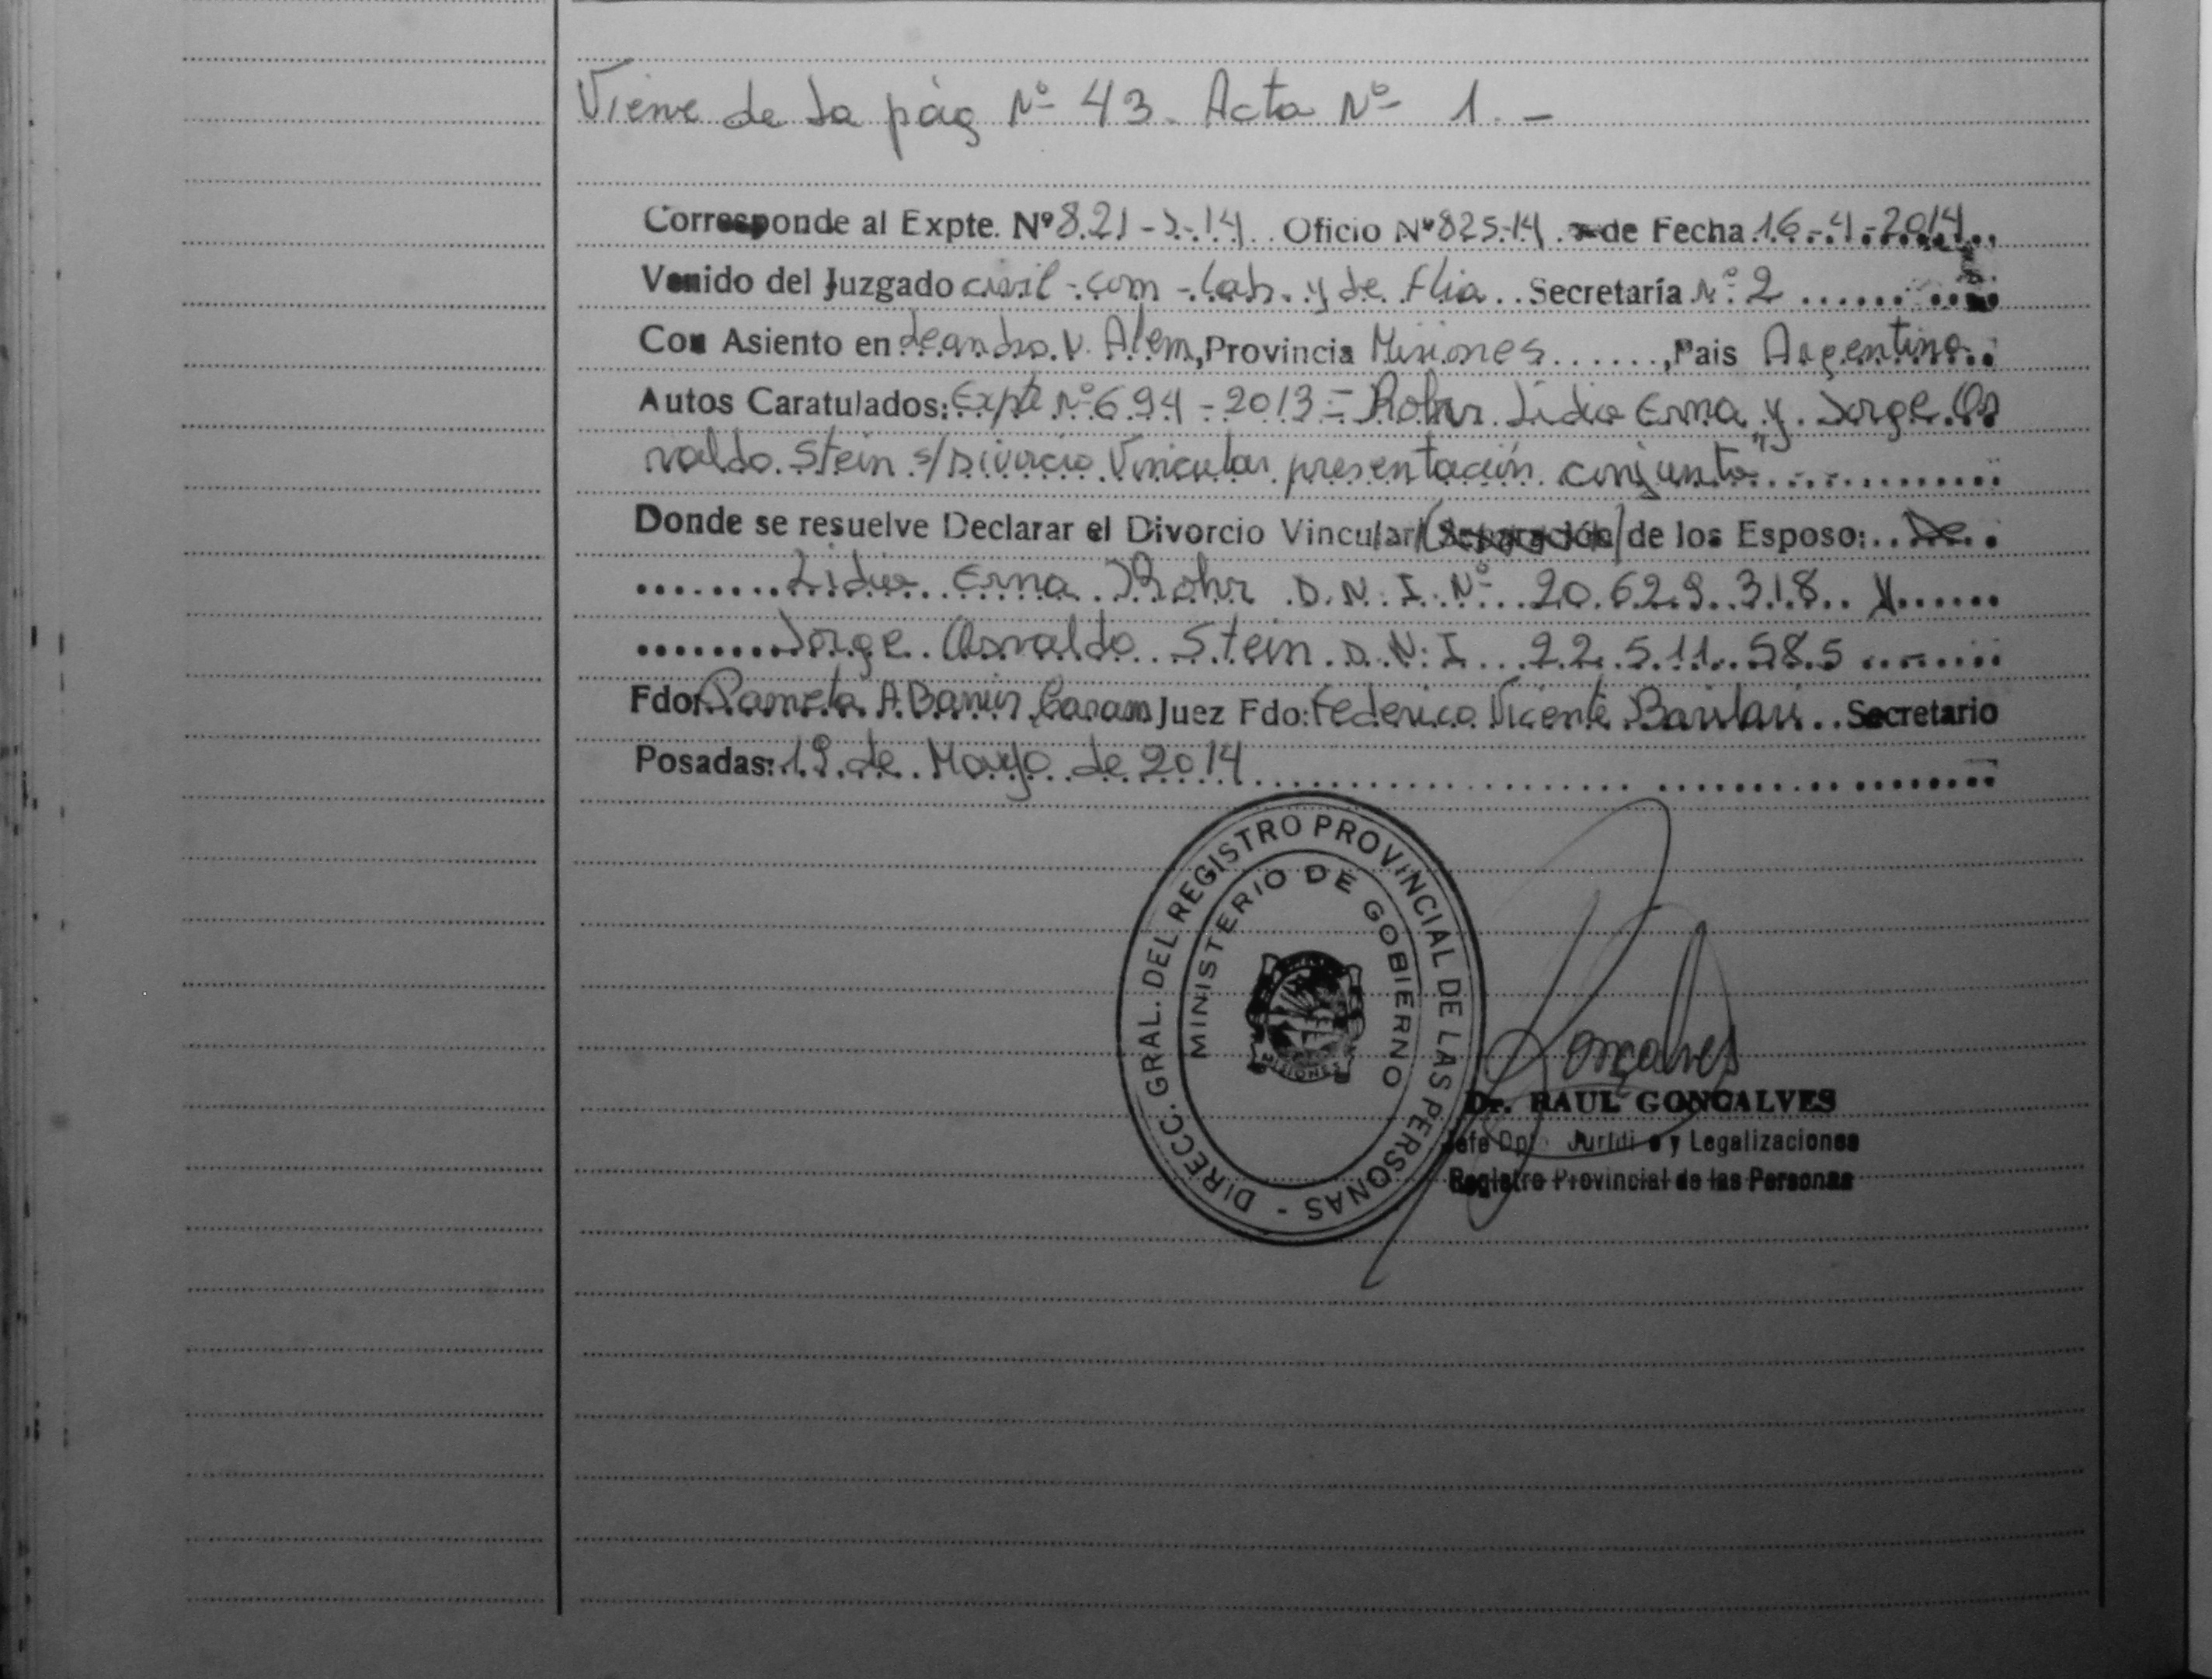 Viene de la pág Nº 43. Acta Nº 1. -
Corresponde al Expte. Nº 821-J-14 Oficio Nº 825-14 de Fecha 16-4-2014
Venido del Juzgado civil-com-lab. y de Flia. Secretaría Nº 2
Con Asiento en Leandro N. Alem, Provincia Misiones, Pais Argentina
Autos Caratulados: Expte Nº 694-2013 - Rohr Lidia Erna y Jorge Os
valdo Stein s/Divorcio Vincular presentación conjunta"
Donde se resuelve Declarar el Divorcio Vincular (Separación) de los Esposo: De
Lidia Erna Rohr D.N.I. Nº 20.629.318 y
Jorge Osvaldo Stein D.N.I 22.511.585
Fdo: Pamela A Juez Fdo: Federico Vicente Barilari Secretario
Posadas: 19 de Mayo de 2014
DIRECC. GRAL. DEL REGISTRO PROVINCIAL DE LAS PERSONAS -
MINISTERIO DE GOBIERNO
MISIONES
Gonçalves
Dr. RAUL GONCALVES
Jefe Dpto Juridico y Legalizaciones
Registro Provincial de las Personas